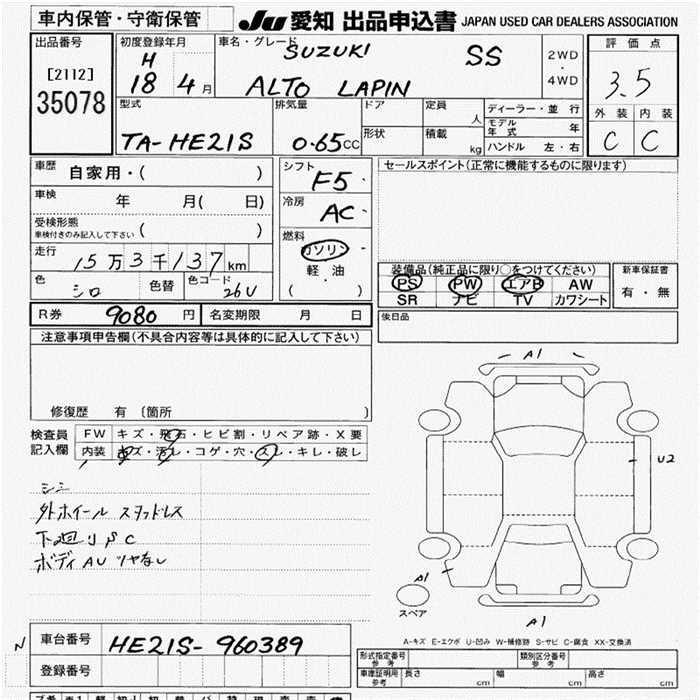 車内保管・守衛保管
JU 愛知 出品申込書 JAPAN USED CAR DEALERS ASSOCIATION
出品番号
[2112]
35078
初度登録年月
H
18 4 月
車名・グレード
SUZUKI SS
ALTO LAPIN
2WD
・
4WD
評価点
3.5
外装 内装
C C
型式
TA-HE21S
排気量
0.65cc
ドア
形状
定員 人
積載 kg
ディーラー・並行
モデル年式 年
ハンドル 左・右
車歴 自家用・( )
車検 年 月( 日)
受検形態
車検付きのみ記入して下さい ( )
走行
15万3千137km
色 シロ 色替 色コード 26U
シフト
F5
冷房
AC
燃料
ガソリン
軽・油
( )
セールスポイント(正常に機能するものに限ります)
装備品(純正品に限り○をつけてください)
PS PW エアB AW
SR ナビ TV カワシート
新車保証書
有・無
R券 9080 円 名変期限 月 日
後日品
注意事項申告欄(不具合内容等は具体的に記入して下さい)
修復歴 有 〔箇所 〕
検査員
記入欄
FW キズ・飛石・ヒビ割・リペア跡・X要
内装 キズ・汚レ・コゲ・穴・スレ・キレ・破レ
シミ
外ホイール スタッドレス
下廻り S C
ボディ AU ツヤなし
A1
U2
A1
スペア
A1
A-キズ E-エクボ U-凹み W-補修跡 S-サビ C-腐食 XX-交換済
N
車台番号 HE21S-960389
登録番号
型式指定番号 参考
類別区分番号 参考
車庫証明用 参考 長さ cm 幅 cm 高さ cm